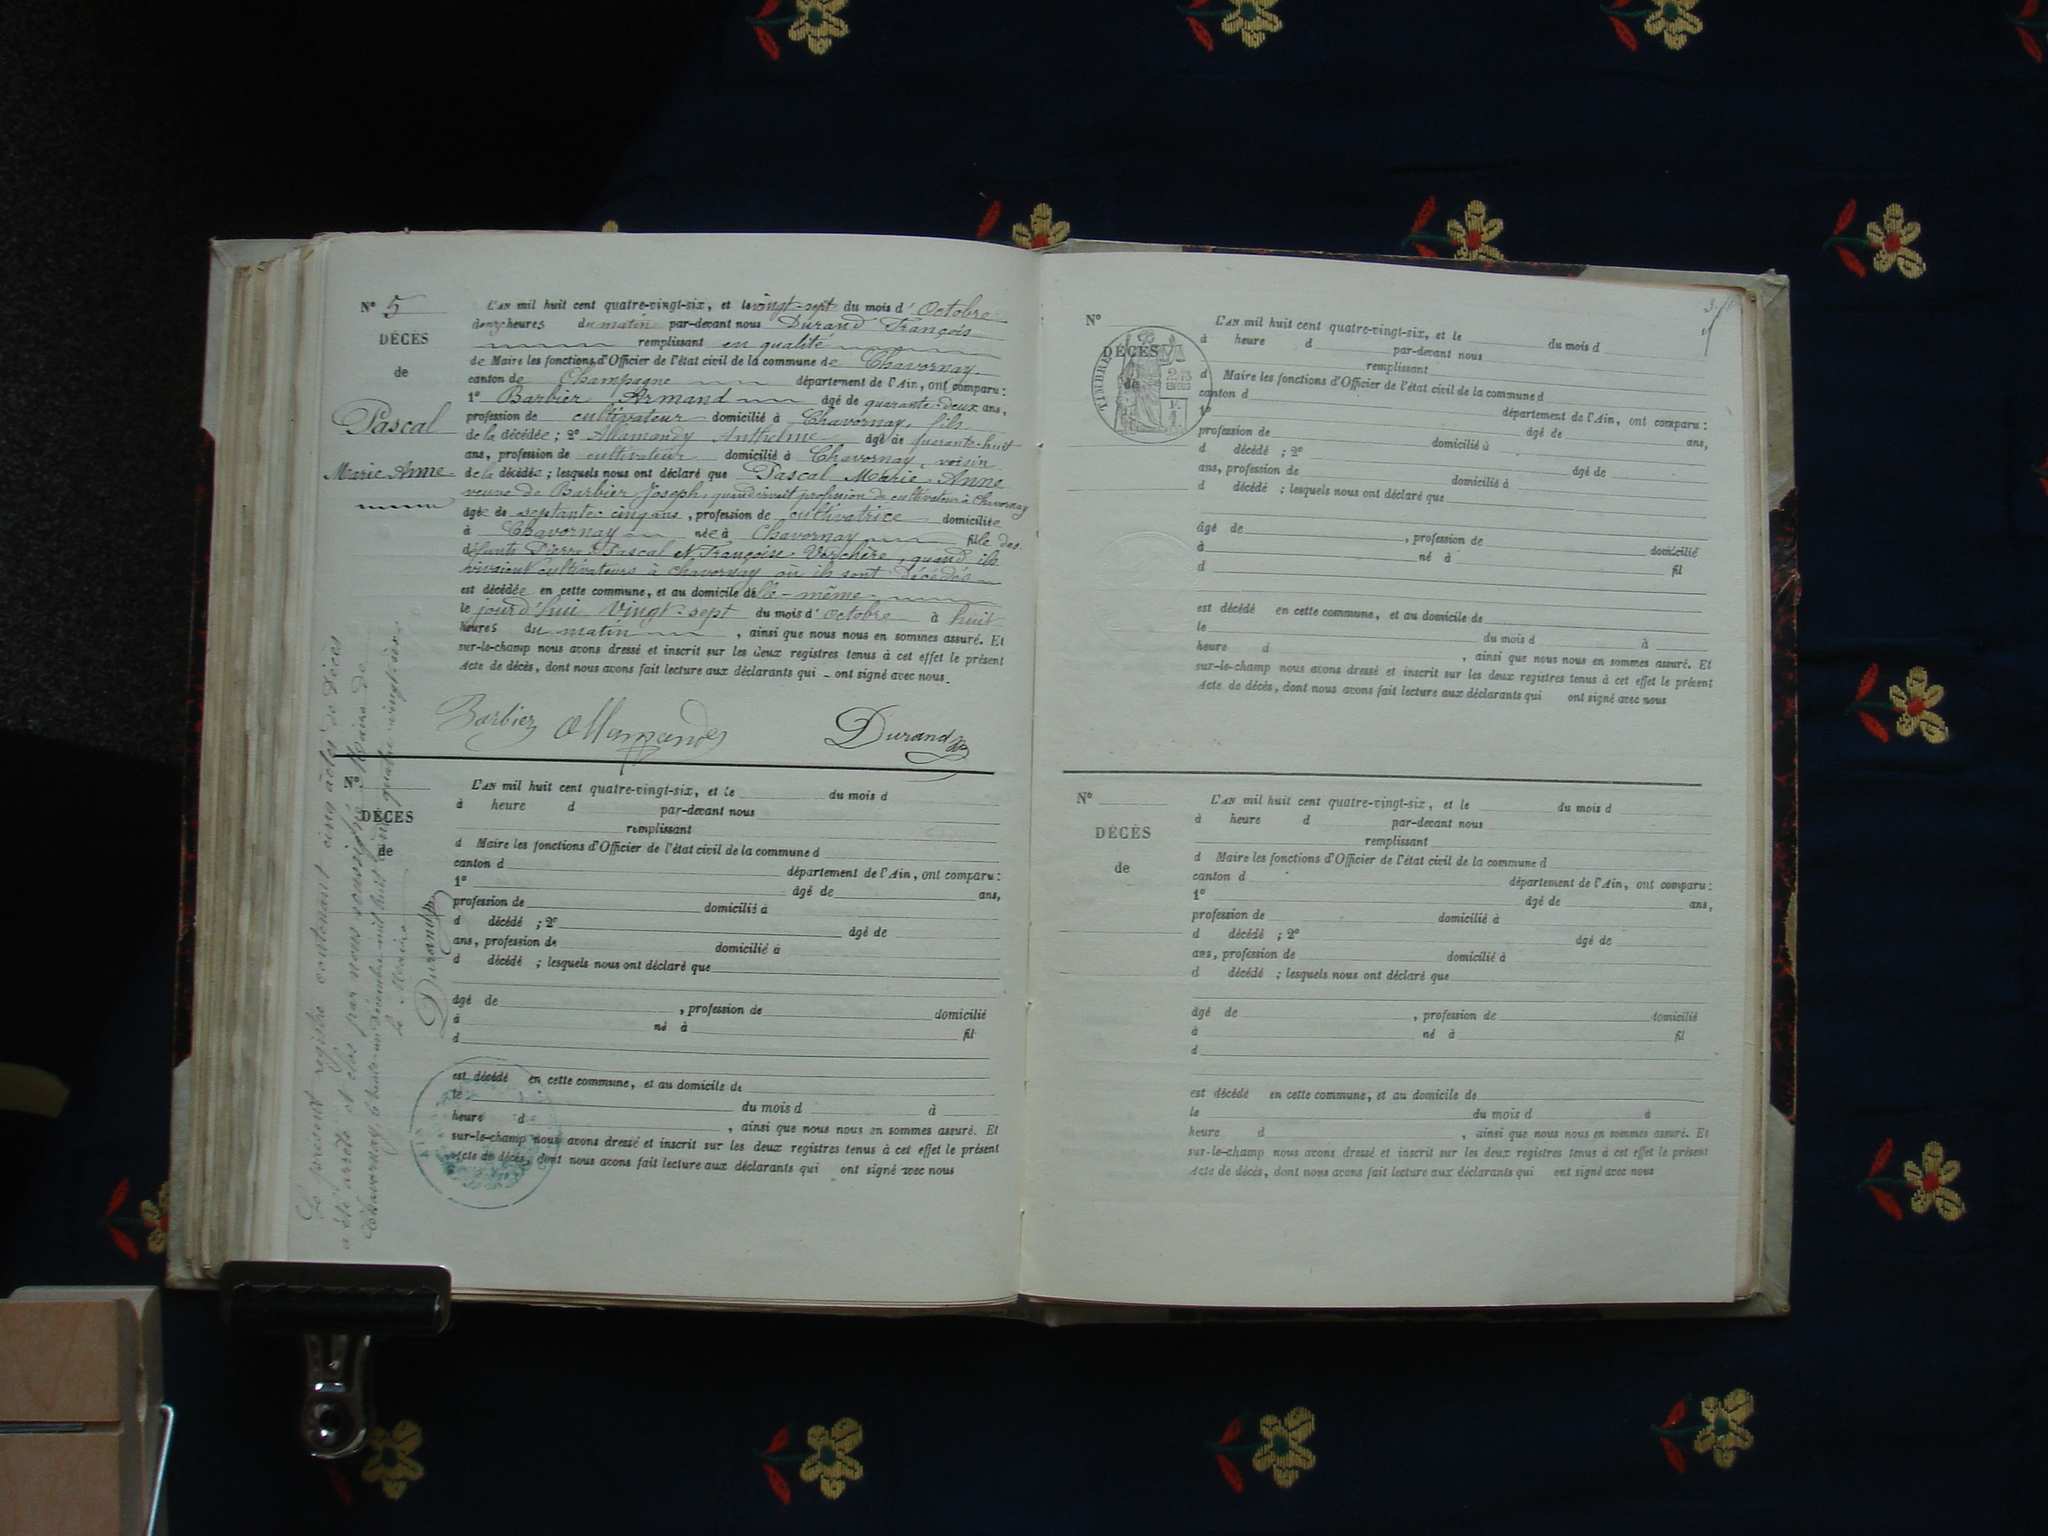 N° 5
DÉCÈS
de
Pascal
Marie Anne
L'AN mil huit cent quatre-vingt-six, et le vingt-sept du mois d' Octobre
heures du matin par-devant nous Durand François
remplissant en qualité
de Maire les fonctions d'Officier de l'état civil de la commune de Chavornay
canton de Champagne département de l'Ain, ont comparu :
1° Barbier Armand âgé de quarante-deux ans,
profession de cultivateur domicilié à Chavornay, fils
de la décédée ; 2° Allamandy Anthelme âgé de quarante-huit
ans, profession de cultivateur domicilié à Chavornay, voisin
de la décédée ; lesquels nous ont déclaré que Pascal Marie Anne
veuve de Barbier Joseph, quand vivait profession de cultivateur à Chavornay
âgée de septante-cinq ans, profession de cultivatrice domiciliée
à Chavornay née à Chavornay fille des
défunts Pierre Pascal et Françoise Verchère, quand ils
vivaient cultivateurs à Chavornay où ils sont décédés
est décédée en cette commune, et au domicile de elle-même
le jourd'hui vingt-sept du mois d' octobre à huit
heures du matin, ainsi que nous nous en sommes assuré. Et
sur-le-champ nous avons dressé et inscrit sur les deux registres tenus à cet effet le présent
Acte de décès, dont nous avons fait lecture aux déclarants qui ont signé avec nous.
Barbier Allamandy Durand
N°
DÉCÈS
de
L'AN mil huit cent quatre-vingt-six, et le du mois d
à heure d par-devant nous
remplissant
d Maire les fonctions d'Officier de l'état civil de la commune d
canton d département de l'Ain, ont comparu :
1° âgé de ans,
profession de domicilié à
d décédé ; 2° âgé de
ans, profession de domicilié à
d décédé ; lesquels nous ont déclaré que
âgé de , profession de domicilié
à né à fil
d
est décédé en cette commune, et au domicile de
le du mois d à
heure d , ainsi que nous nous en sommes assuré. Et
sur-le-champ nous avons dressé et inscrit sur les deux registres tenus à cet effet le présent
Acte de décès, dont nous avons fait lecture aux déclarants qui ont signé avec nous
Le présent registre contenant cinq actes de décès
a été arrêté et clos par nous soussigné Maire de
Chavornay, le trente-un décembre mil huit cent quatre-vingt-six
Le Maire
Durand
AIN
N°
DÉCÈS
de
TIMBRE
L'AN mil huit cent quatre-vingt-six, et le du mois d
à heure d par-devant nous
remplissant
d Maire les fonctions d'Officier de l'état civil de la commune d
canton d département de l'Ain, ont comparu :
1° âgé de ans,
profession de domicilié à
d décédé ; 2° âgé de
ans, profession de domicilié à
d décédé ; lesquels nous ont déclaré que
âgé de , profession de domicilié
à né à fil
d
est décédé en cette commune, et au domicile de
le du mois d à
heure d , ainsi que nous nous en sommes assuré. Et
sur-le-champ nous avons dressé et inscrit sur les deux registres tenus à cet effet le présent
Acte de décès, dont nous avons fait lecture aux déclarants qui ont signé avec nous
N°
DÉCÈS
de
L'AN mil huit cent quatre-vingt-six, et le du mois d
à heure d par-devant nous
remplissant
d Maire les fonctions d'Officier de l'état civil de la commune d
canton d département de l'Ain, ont comparu :
1° âgé de ans,
profession de domicilié à
d décédé ; 2° âgé de
ans, profession de domicilié à
d décédé ; lesquels nous ont déclaré que
âgé de , profession de domicilié
à né à fil
d
est décédé en cette commune, et au domicile de
le du mois d à
heure d , ainsi que nous nous en sommes assuré. Et
sur-le-champ nous avons dressé et inscrit sur les deux registres tenus à cet effet le présent
Acte de décès, dont nous avons fait lecture aux déclarants qui ont signé avec nous